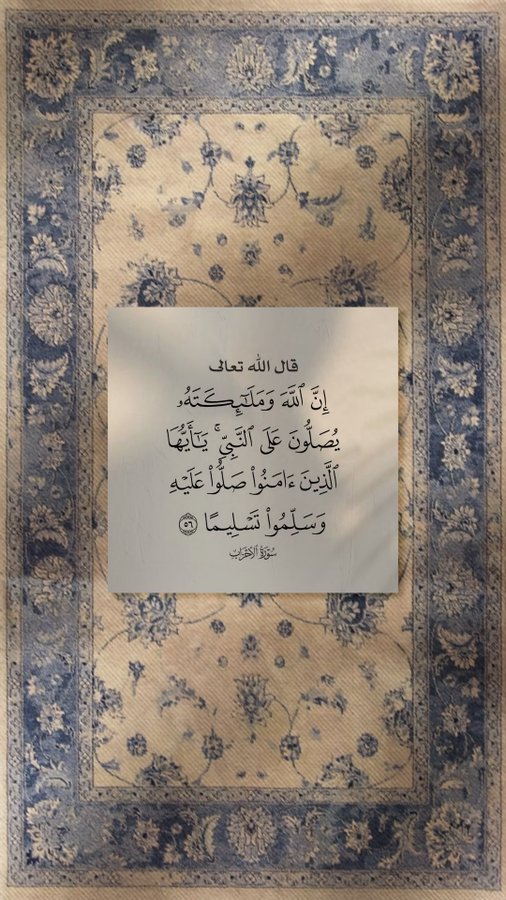 قال الله تعالى
إِنَّ ٱللَّهَ وَمَلَـٰٓئِكَتَهُۥ
يُصَلُّونَ عَلَى ٱلنَّبِىِّ ۚ يَـٰٓأَيُّهَا
ٱلَّذِينَ ءَامَنُوا۟ صَلُّوا۟ عَلَيْهِ
وَسَلِّمُوا۟ تَسْلِيمًا ٥٦
سُورَةُ الأَحْزَابِ